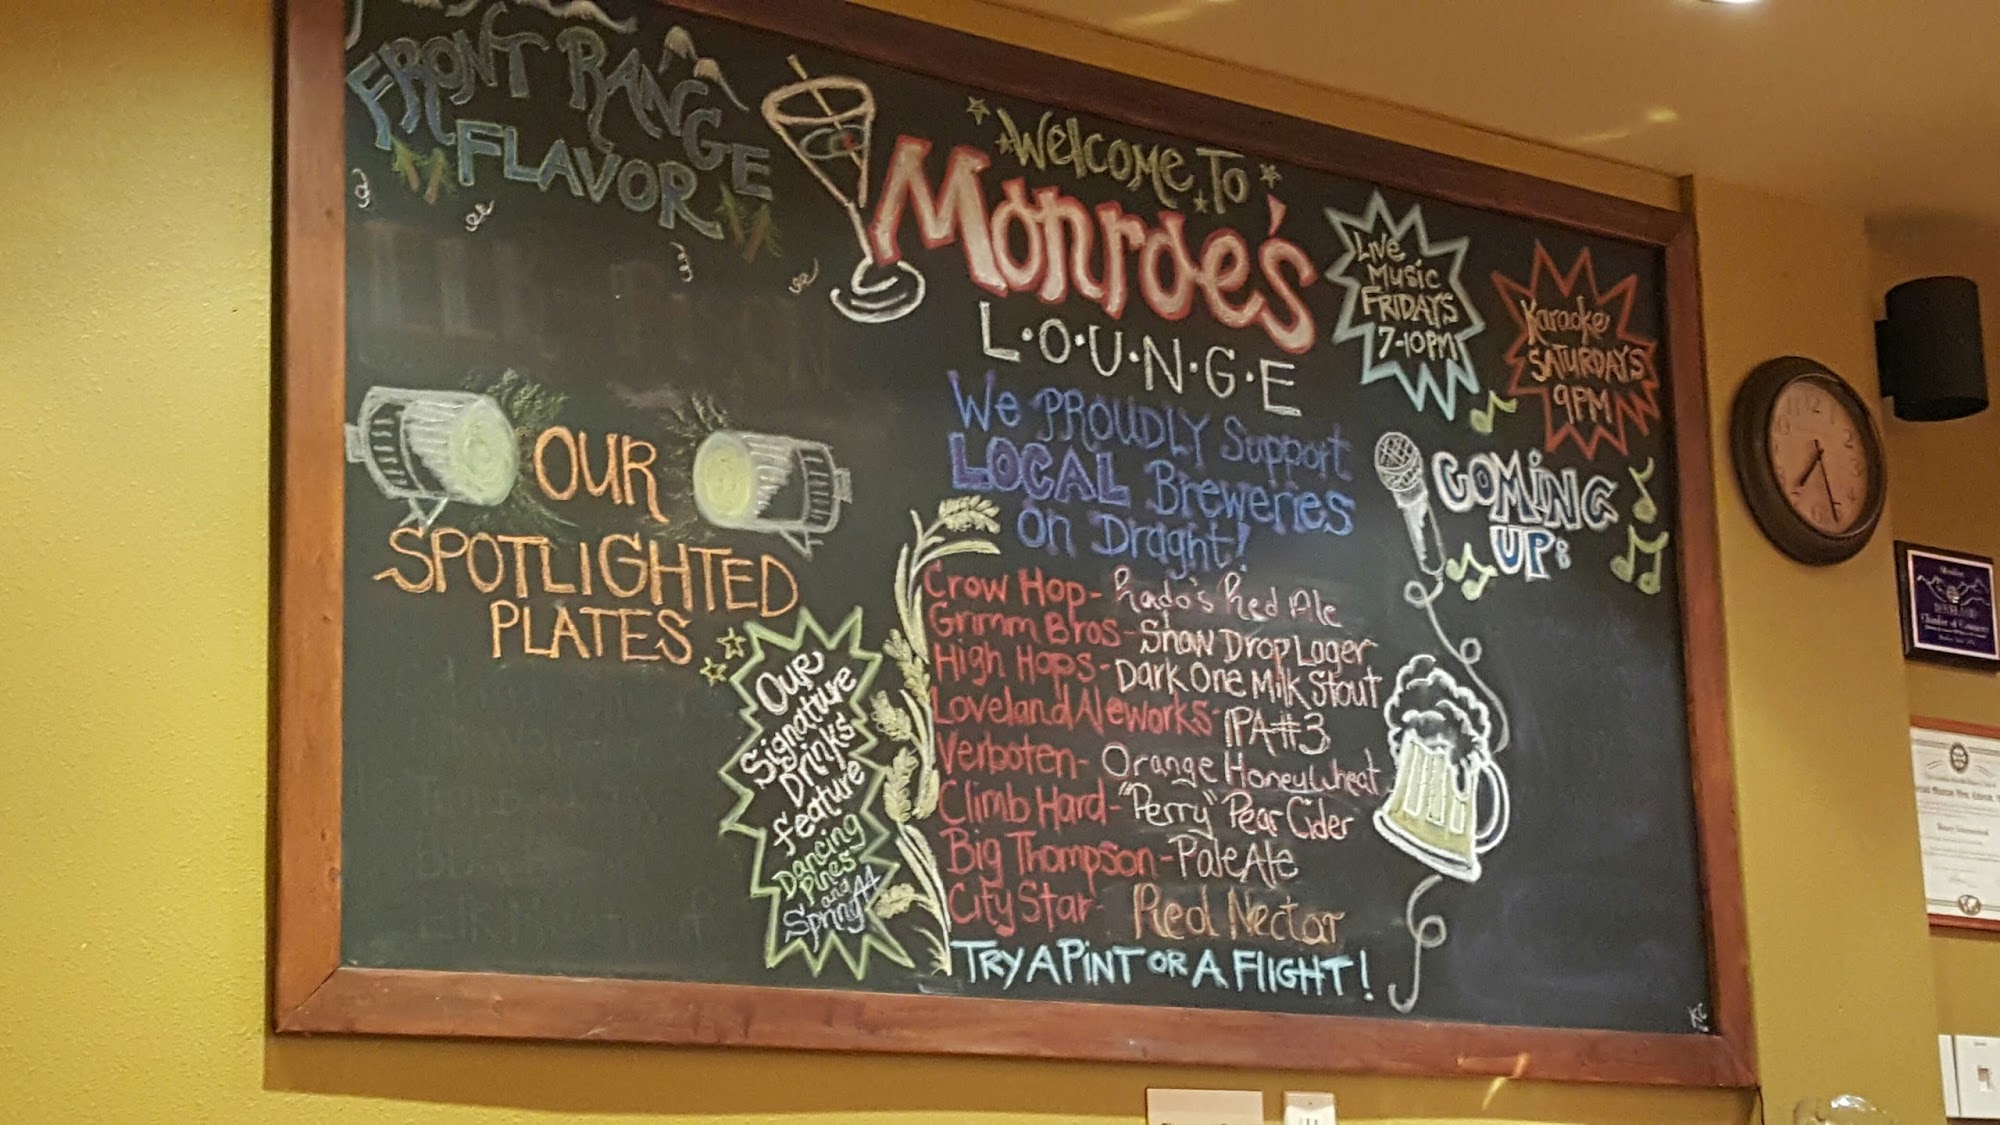 FRONT RANGE
FLAVOR
WELCOME TO
Monroe's
L·O·U·N·G·E
LIVE
MUSIC
FRIDAYS
7-10PM
Karaoke
SATURDAYS
9PM
We PROUDLY Support
LOCAL Breweries
on Draght!
COMING
UP:
OUR
SPOTLIGHTED
PLATES
Our
Signature
Drinks
feature
Dancing
Pines
and
Spring44
Crow Hop- Rado's Red Ale
Grimm Bros- Snow Drop Lager
High Hops- Dark One Milk Stout
Loveland Aleworks- IPA#3
Verboten- Orange Honey Wheat
Climb Hard- "Perry" Pear Cider
Big Thompson- Pale Ale
City Star- Red Nectar
TRY A PINT OR A FLIGHT!
KC
Member
Chamber of Commerce